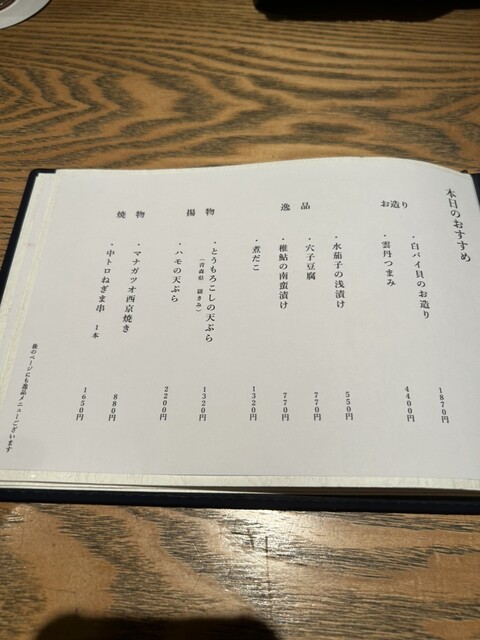 本日のおすすめ
お造り
・白バイ貝のお造り 1870円
・雲丹つまみ 4400円
逸品
・水茄子の浅漬け 550円
・穴子豆腐 770円
・稚鮎の南蛮漬け 770円
・煮だこ 1320円
揚物
・とうもろこしの天ぷら 1320円
（青森県 嶽きみ）
・ハモの天ぷら 2200円
焼物
・マナガツオ西京焼き 880円
・中トロねぎま串 1本 1650円
後のページにも逸品メニューございます